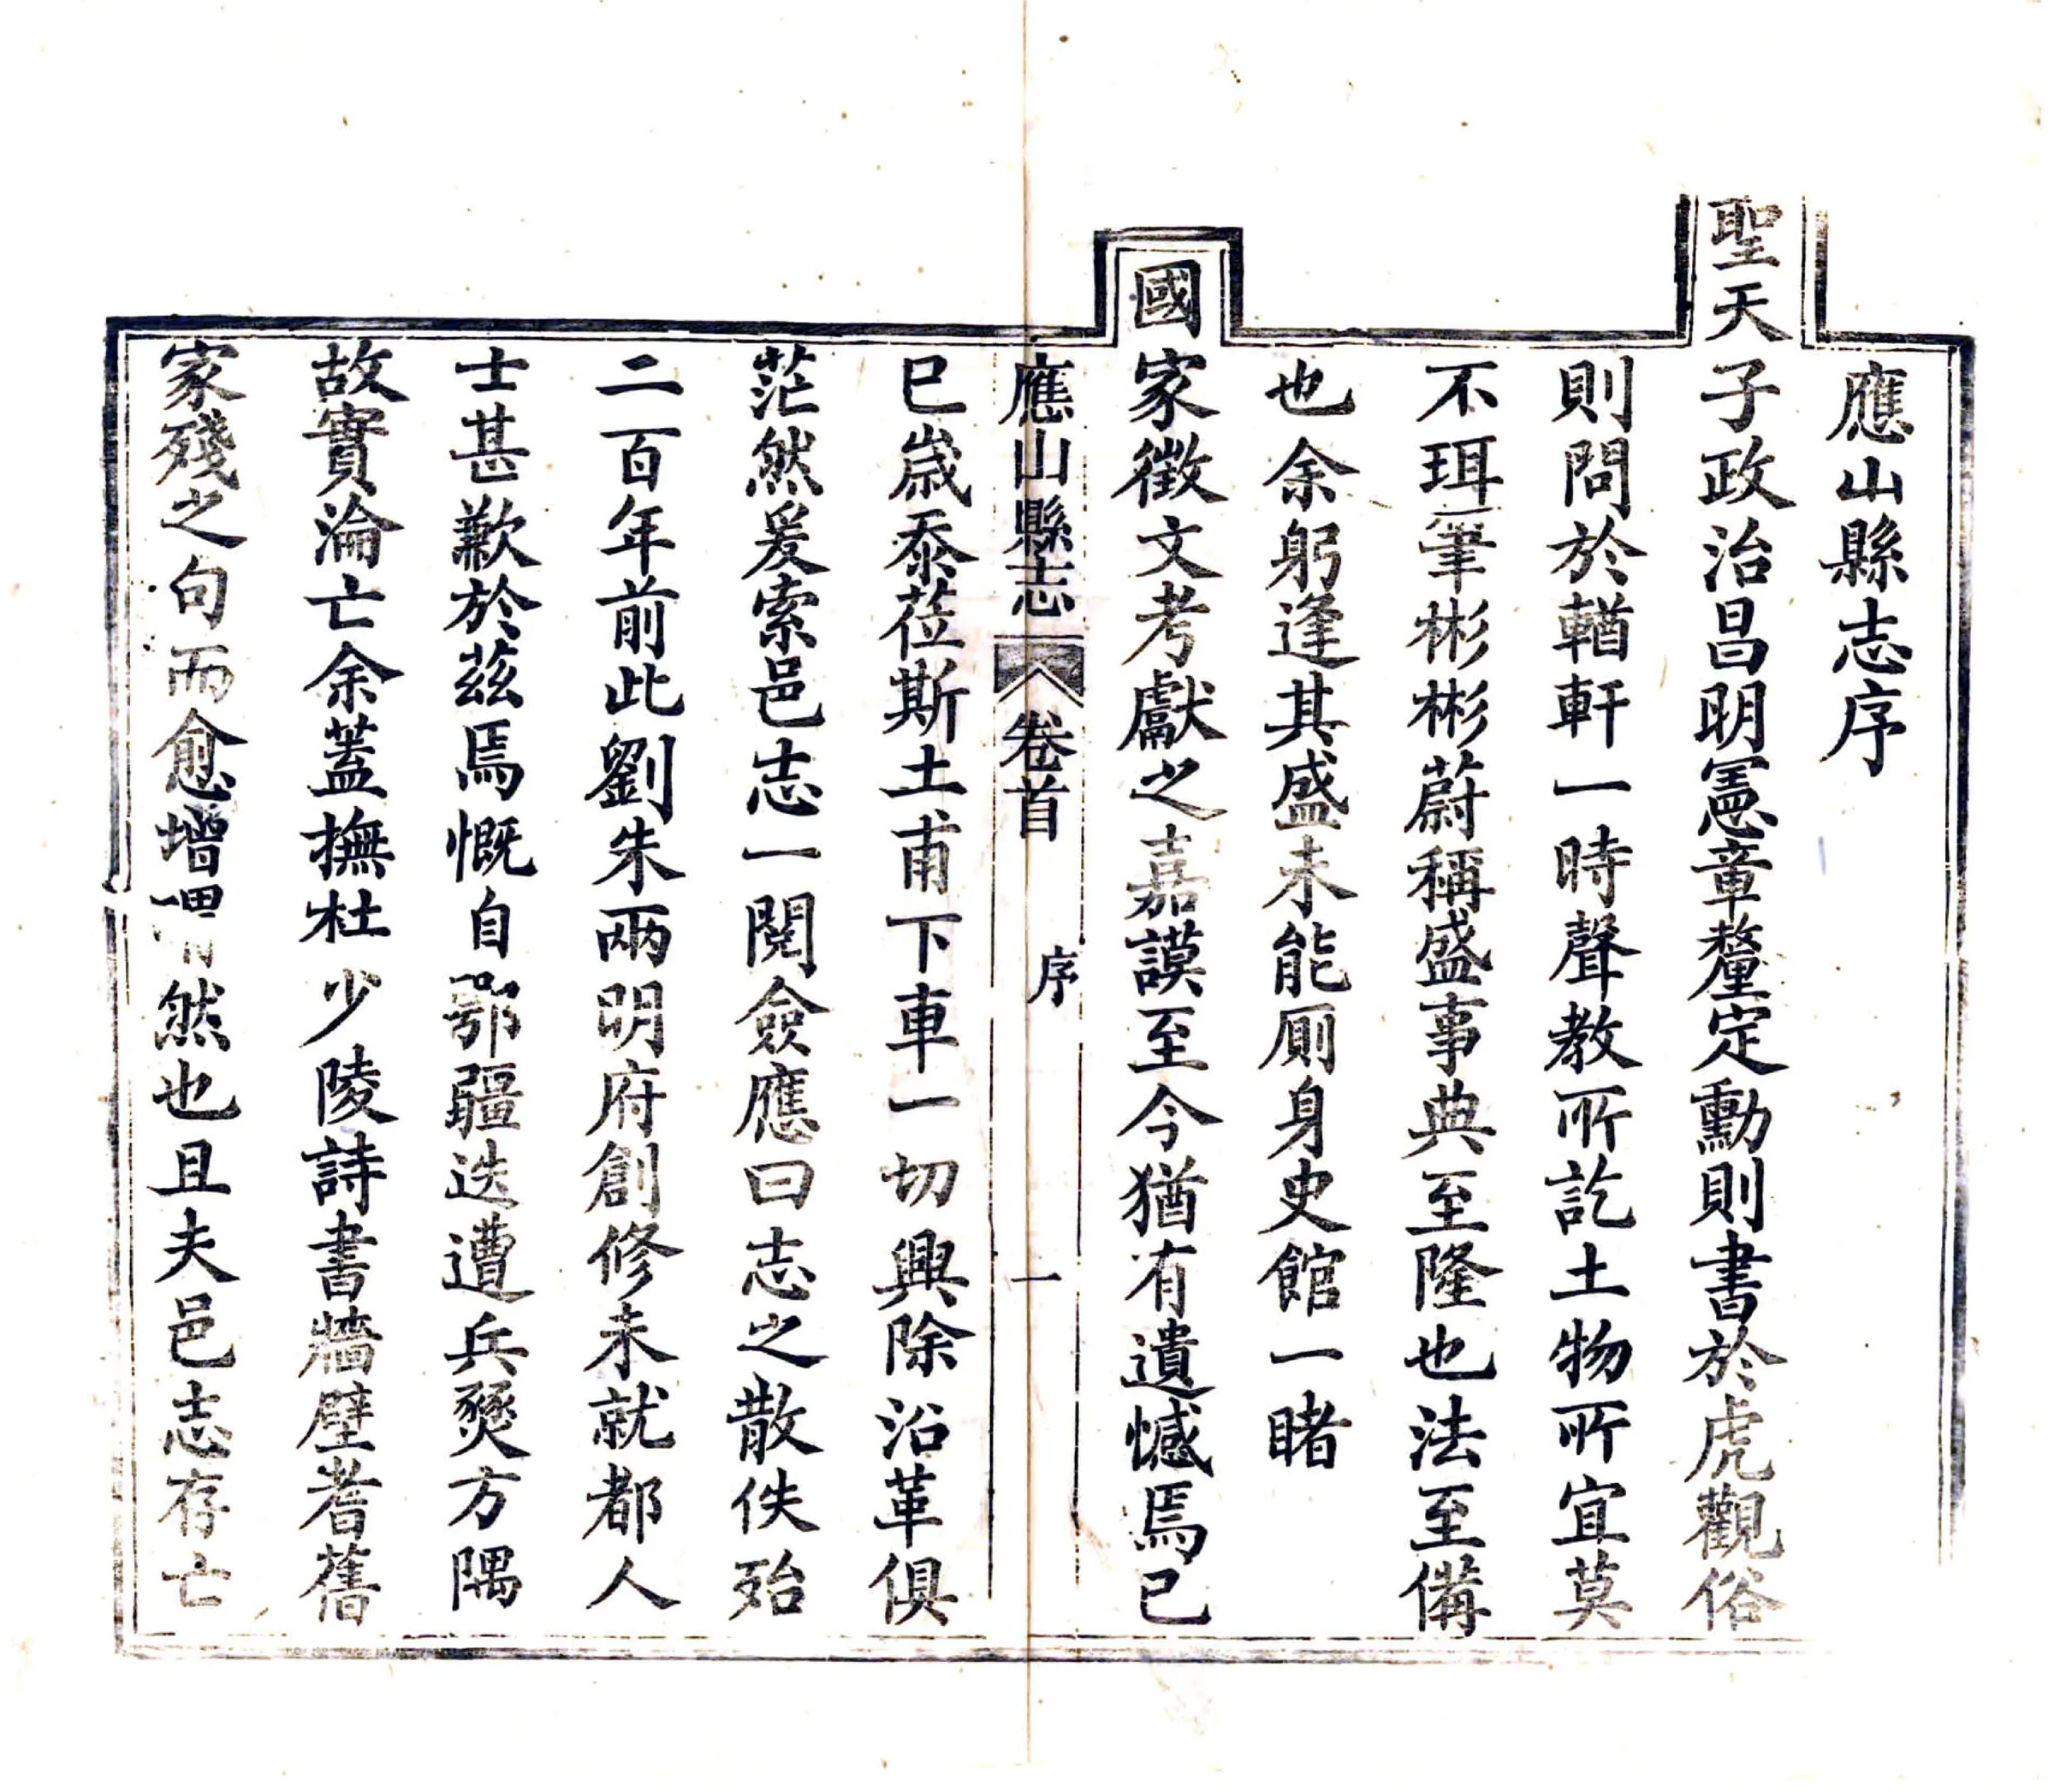 應山縣志序
聖天子政治昌明憲章釐定勳則書於虎觀俗
則問於輶軒一時聲教所訖土物所宜莫
不珥筆彬彬蔚稱盛事典至隆也法至備
也余躬逢其盛未能廁身史館一睹
國家徵文考獻之嘉謨至今猶有遺憾焉已
應山縣志 卷首 序 一
巳歲忝莅斯土甫下車一切興除沿革俱
茫然爰索邑志一閱僉應曰志之散佚殆
二百年前此劉朱兩明府創修未就都人
士甚歉於茲焉慨自鄂疆迭遭兵燹方隅
故實淪亡余蓋撫杜少陵詩書牆壁耆舊
家殘之句而愈增然也且夫邑志存亡